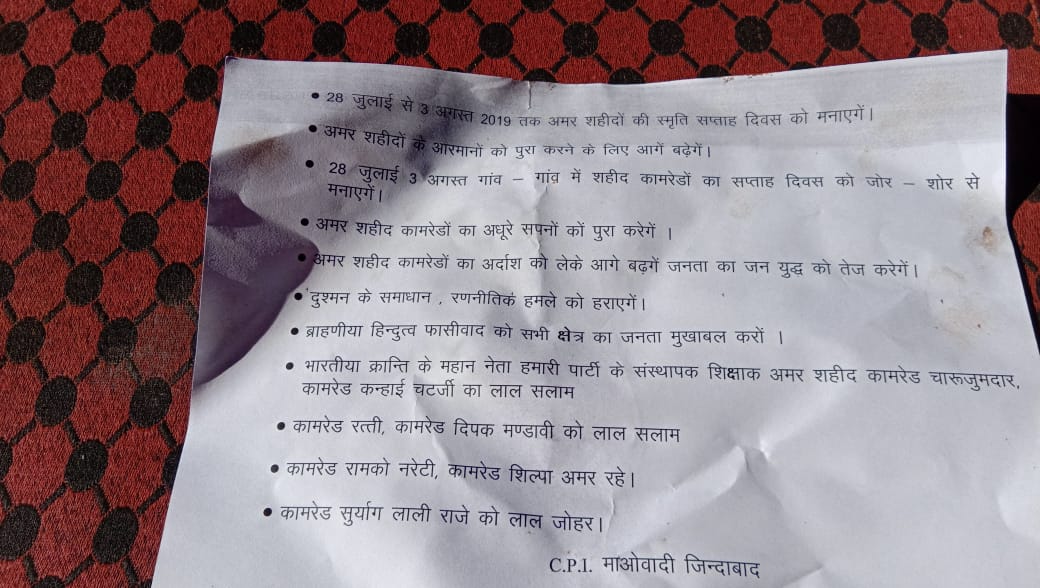 • 28 जुलाई से 3 अगस्त 2019 तक अमर शहीदों की स्मृति सप्ताह दिवस को मनाएगें।
• अमर शहीदों के आरमानों को पुरा करने के लिए आगें बढ़ेगें।
• 28 जुलाई 3 अगस्त गांव – गांव में शहीद कामरेडों का सप्ताह दिवस को जोर – शोर से
मनाएगें।
• अमर शहीद कामरेडों का अधूरे सपनों कों पुरा करेगें ।
• अमर शहीद कामरेडों का अर्दाश को लेके आगे बढ़गें जनता का जन युद्ध को तेज करेगें।
• दुश्मन के समाधान , रणनीतिक हमले को हराएगें।
• ब्राहणीया हिन्दुत्व फासीवाद को सभी क्षेत्र का जनता मुखाबल करों ।
• भारतीया क्रान्ति के महान नेता हमारी पार्टी के संस्थापक शिक्षाक अमर शहीद कामरेड चारूजुमदार,
कामरेड कन्हाई चटर्जी का लाल सलाम
• कामरेड रत्ती, कामरेड दिपक मण्डावी को लाल सलाम
• कामरेड रामको नरेटी, कामरेड शिल्पा अमर रहे।
• कामरेड सुर्याग लाली राजे को लाल जोहर।
C.P.I. माओवादी जिन्दाबाद